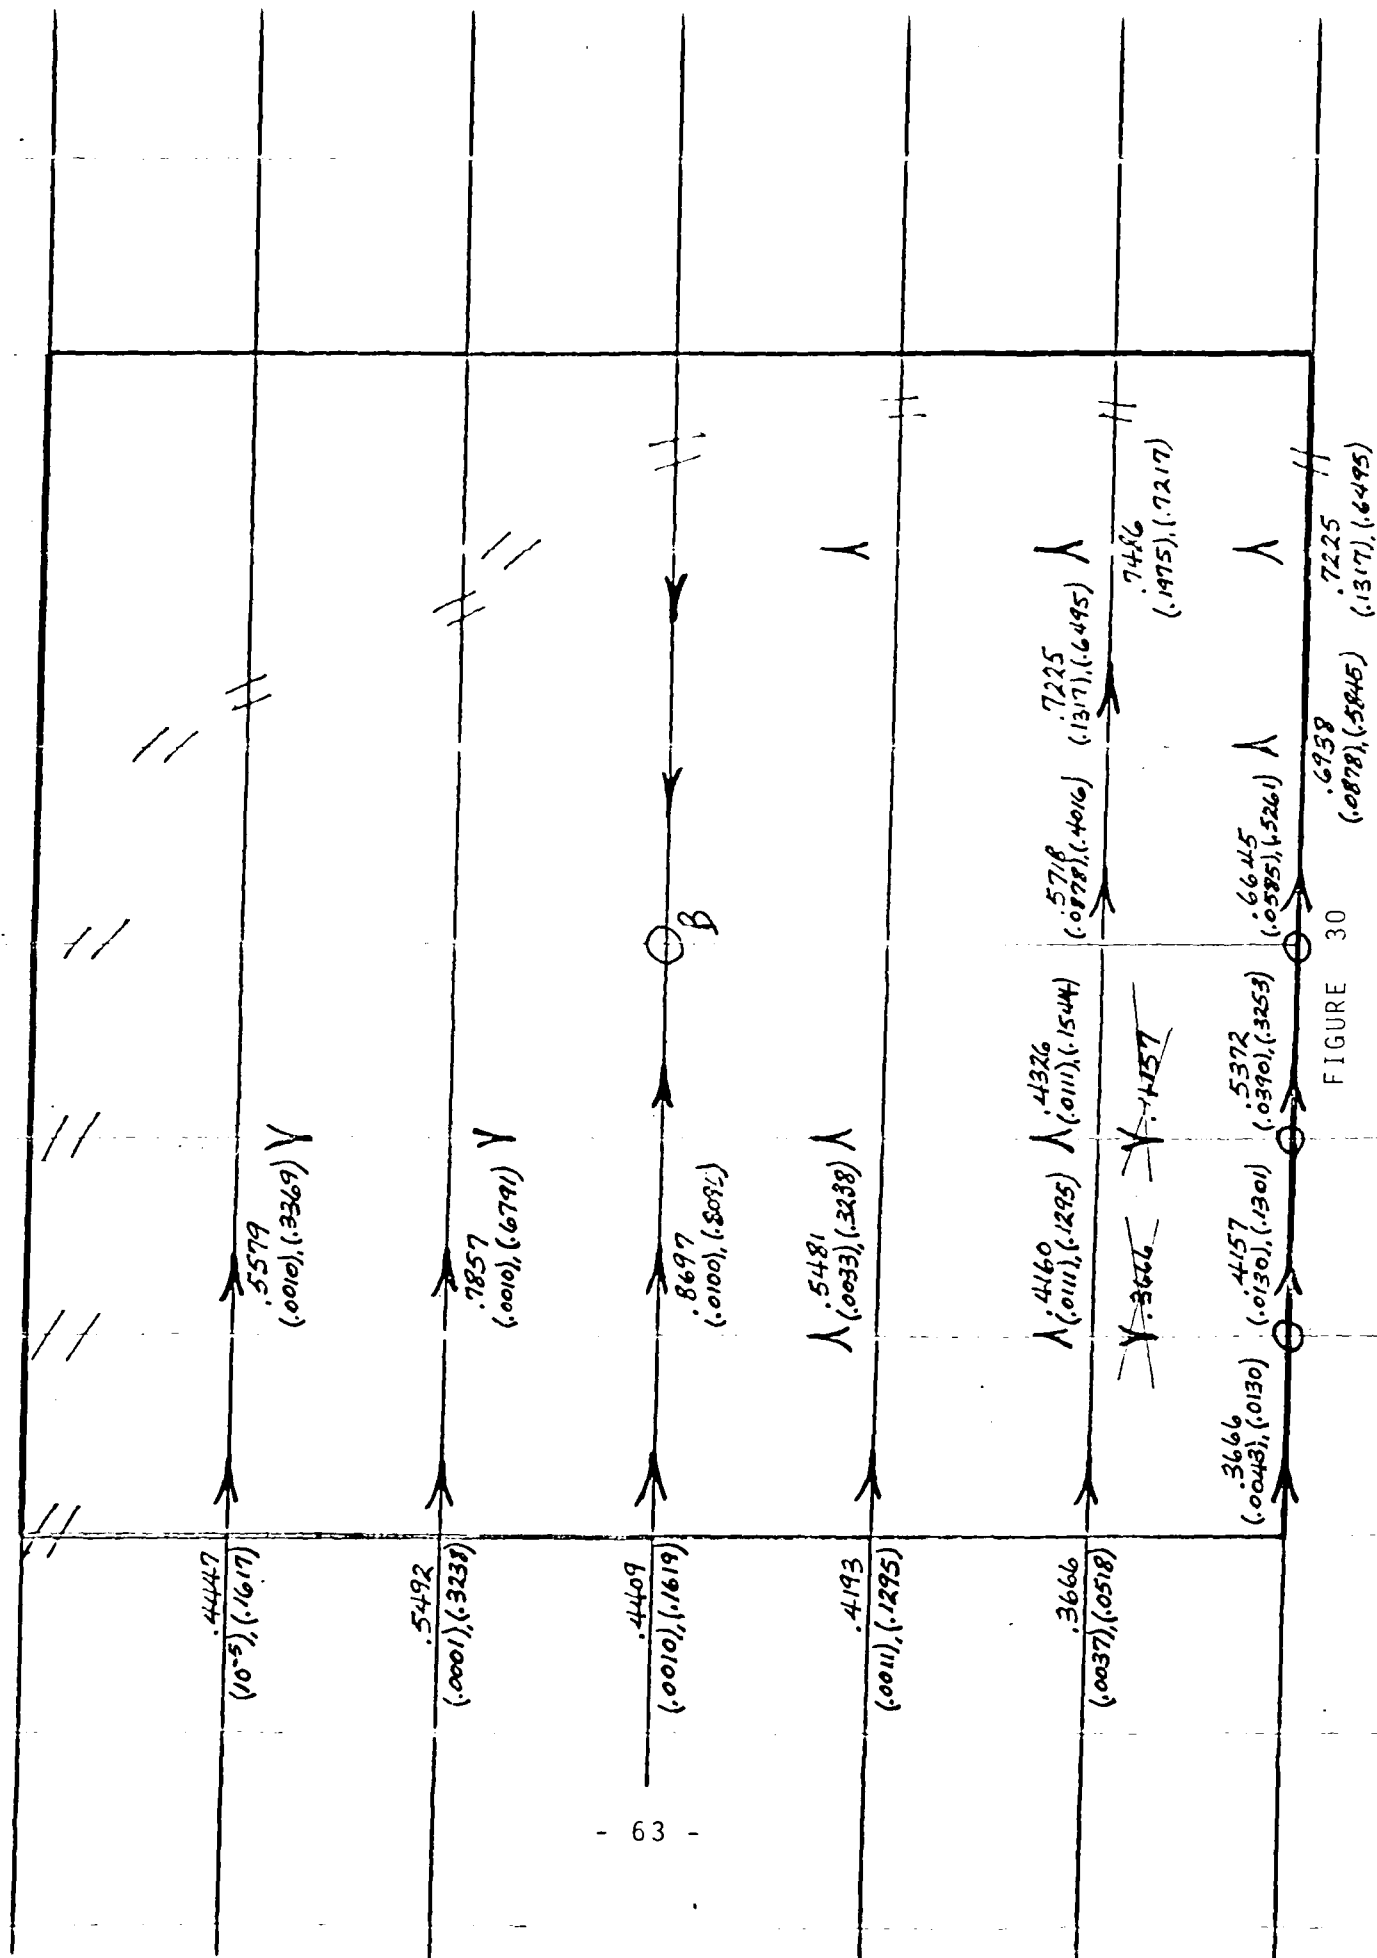 .4447
(10⁻⁵),(.1617)
.5579
(.0010),(.3369)
.5492
(.0001),(.3238)
.7857
(.0010),(.6791)
.4409
(.0010),(.1619)
.8697
B
.4193
(.0011),(.1295)
.5481
(.0033),(.3238)
.3666
(.0037),(.0518)
.4160
(.0111),(.1295)
.4326
(.0111),(.1544)
.5718
(.0878),(.4016)
.7225
(.1317),(.6495)
.7486
(.1975),(.7217)
.3666
.4157
.3666
(.0043),(.0130)
.4157
(.0130),(.1301)
.5372
(.0390),(.3253)
.6645
(.0585),(.5261)
.6938
(.0878),(.5845)
.7225
(.1317),(.6495)
FIGURE 30
- 63 -